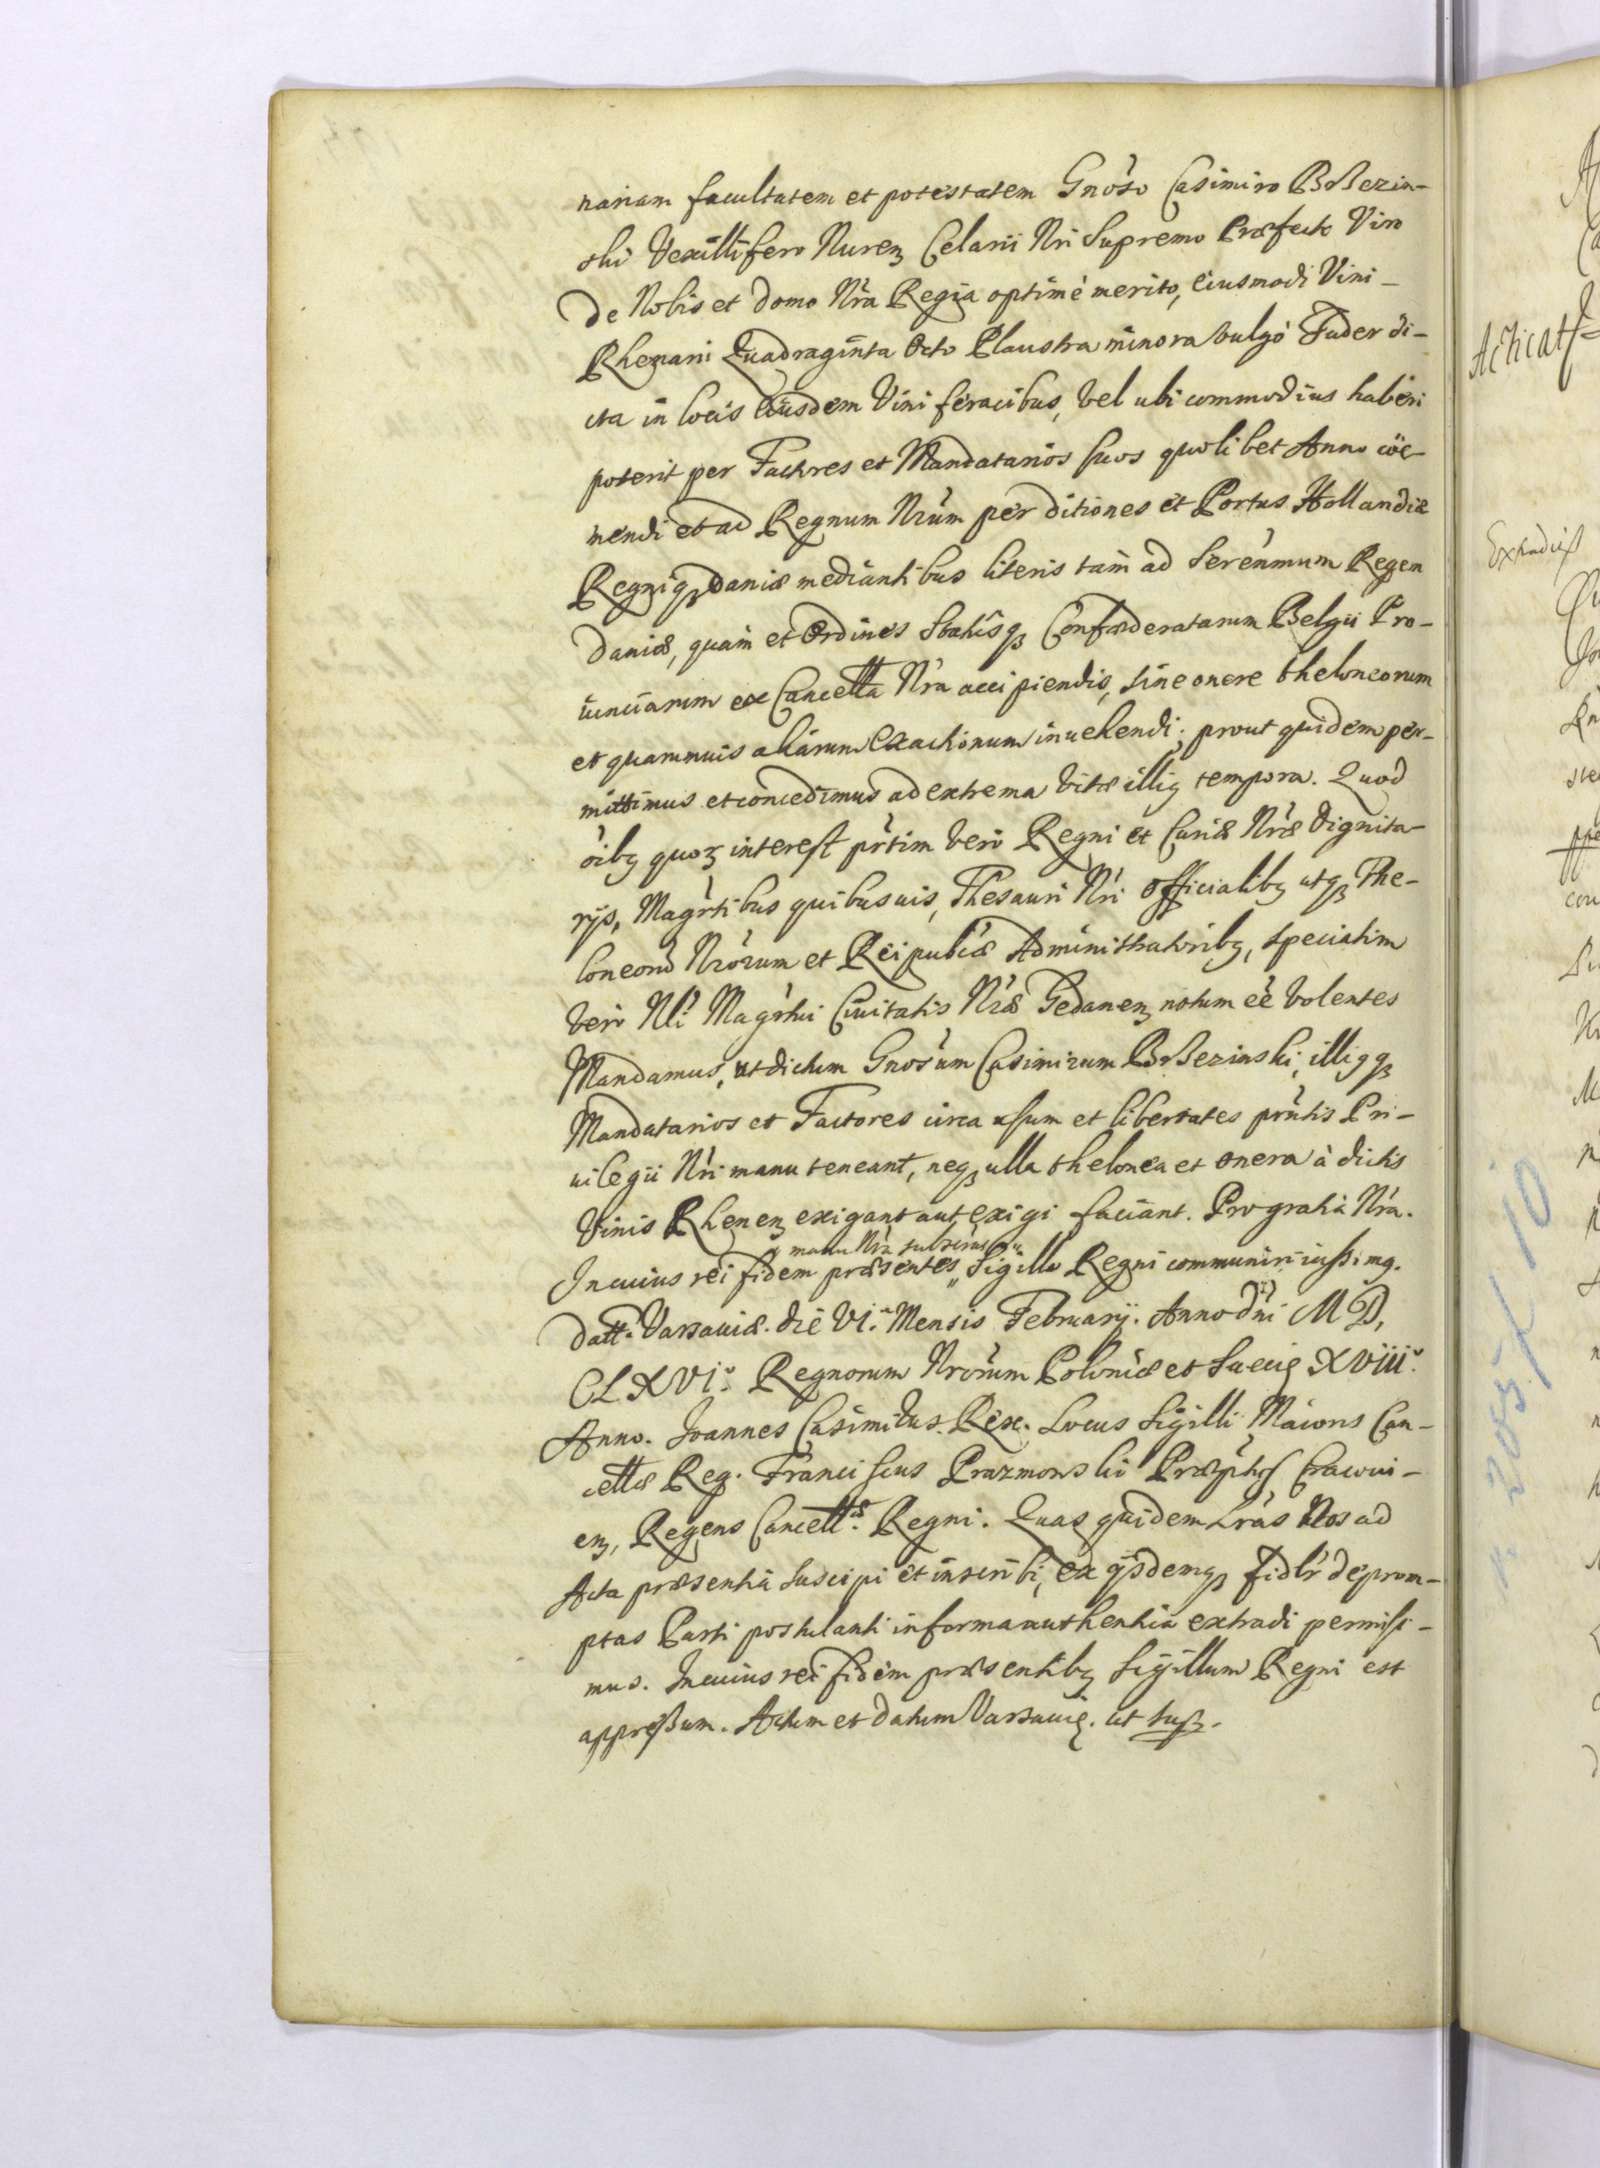 nariam facultatem et potestatem Gnoso Casimiro Brzezin-
ski Vexillifero Nurenz Celarii Nri Supremo Præfecto Viro
de Nobis et domo Nra Regia optimè merito, eiusmodi Vini-
Rhenani Quadraginta Octo Plaustra minora vulgò Fuder di-
cta in locis eiusdem Vini feracibus, vel ubi commodius haberi
poterit per Factores et Mandatarios suos quolibet Anno coë-
mendi et ad Regnum Nrum per ditiones et Portus Hollandiæ
Regniq3 Daniæ mediantibus literis tam ad Serenmum Regem
Daniæ, quàm et Ordines Statusq3 Confæderatarum Belgii Pro-
uinciarum ex Cancella Nra accipiendis, sine onere theloneorum
et quarumuis aliarum exactionum inuehendi; prout quidem per-
mittimus et concedimus ad extrema vitæ illig tempora. Quod
oibg quoz interest prtim vero Regni et Curiæ Nræ Dignita-
rijs, Magrtibus quibusuis, Thesauri Nri Officialibg utq3 The-
loneoru Nrorum et Reipublcæ Administratoribg, speciatim
vero Nli Magrtui Ciuitatis Nræ Gedanenz notum eë volentes
Mandamus, ut dictum Gnosum Casimirum Brzezinski, illigq3
Mandatarios et Factores circa usum et libertates prntis Pri-
uilegii Nri manu teneant, neq3 ulla thelonea et onera à dictis
Vinis Rhenenz exigant aut exigi faciant. Pro gratia Nra.
manu Nra subscriptas
In cuius rei fidem præsentes Sigillo Regni communiri iussimg.
Datt. Varsauiæ. die VI. Mensis Februarij. Anno Dni MD,
CLXVI. Regnorum Nrorum Poloniæ et Sueciæ XVIII.
Anno. Joannes Casimirus Rex. Locus Sigilli Maioris Can-
cellæ Reg. Franciscus Prazmowski Præpts Cracoui-
enz, Regens Cancell. Regni. Quas quidem Lras Nos ad
Acta præsentia suscipi et inscribi, ex ijsdemq3 fidlr deprom-
ptas Parti postulanti in forma authentica extradi permisi-
mus. In cuius rei fidem præsentibg Sigillum Regni est
appressum. Actum et datum Varsauiæ. ut sup.
Acticat
Extradit